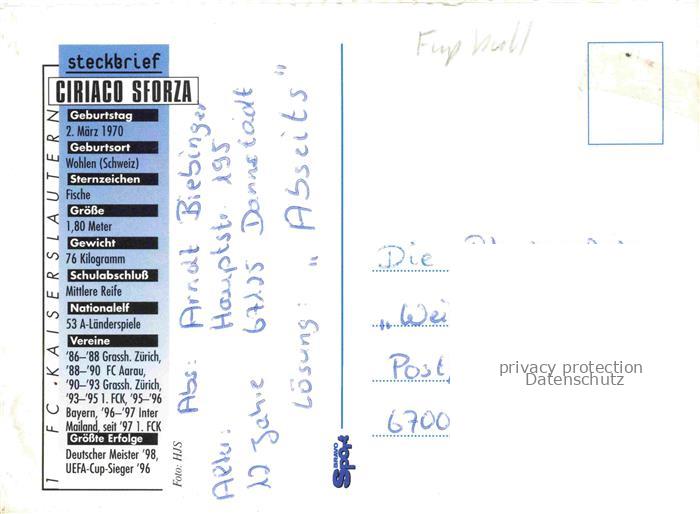 steckbrief
CIRIACO SFORZA
Geburtstag
2. März 1970
Geburtsort
Wohlen (Schweiz)
Sternzeichen
Fische
Größe
1,80 Meter
Gewicht
76 Kilogramm
Schulabschluß
Mittlere Reife
Nationalelf
53 A-Länderspiele
Vereine
'86–'88 Grassh. Zürich,
'88–'90 FC Aarau,
'90–'93 Grassh. Zürich,
'93–'95 1. FCK, '95–'96
Bayern, '96–'97 Inter
Mailand, seit '97 1. FCK
Größte Erfolge
Deutscher Meister '98,
UEFA-Cup-Sieger '96
1 FC·KAISERSLAUTERN
Foto: HJS
Abs: Arndt Biebinger
Hauptstr. 195
67125 Dannstadt
Alter:
12 Jahre
Lösung: „Abseits"
Sport
Fußball
Die
„Wei
Post
6700
privacy protection
Datenschutz